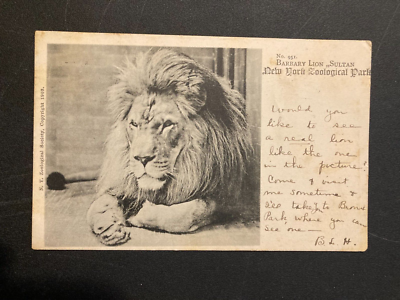 No. 351.
Barbary Lion „Sultan
New York Zoological Park
N. Y. Zoological Society, Copyright 1903.
Would you
like to see
a real lion
like the one
in the picture?
Come & visit
me sometime &
I'll take to Bronx
Park, where you can
see one—
B. L. H.